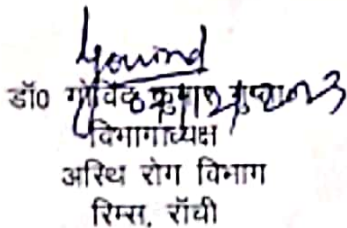 Govind
डॉ0 गोविन्द कुमार गुप्ता
विभागाध्यक्ष
अस्थि रोग विभाग
रिम्स, राँची